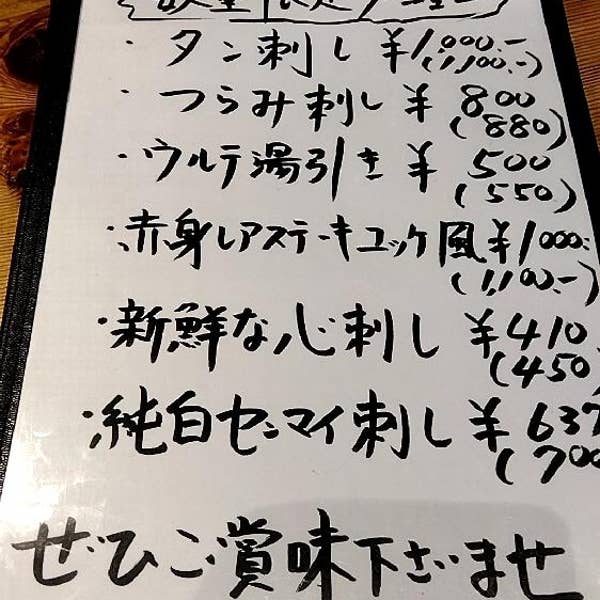 ・タン刺し ¥1,000.-
(1,100.-)
・つらみ刺し ¥ 800
(880)
・ウルテ湯引き ¥ 500
(550)
・赤身レアステーキユッケ風 ¥1000.-
(1,100.-)
・新鮮な心刺し ¥410
(450)
・純白センマイ刺し ¥637
(700
ぜひご賞味下ざいませ